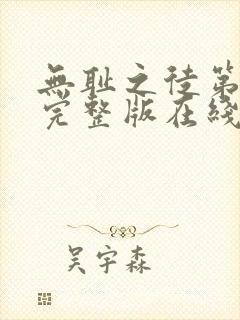 無耻之徒第
完整版在綫
吴宇森